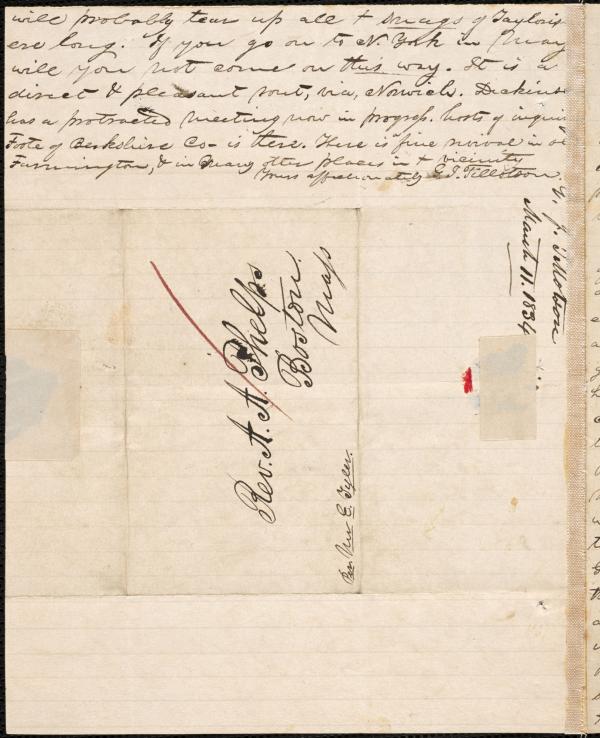 will probably tear up all + snags of Taylors
ere long. If you go on to N. York in May
will you not come on this way. It is a
direct & pleasant rout, via, Norwich. Dickins
has a protracted meeting now in progress. hosts of inquir
Foote of Berkshire Co- is there. There is fine revival in
Farmington, & in many other places in + vicinity
Yours affectionately G. J. Tillotson.
G. J. Tillotson
March 11. 1834
Rev. A. A. Phelps
Boston.
Mass
E. Tyler.